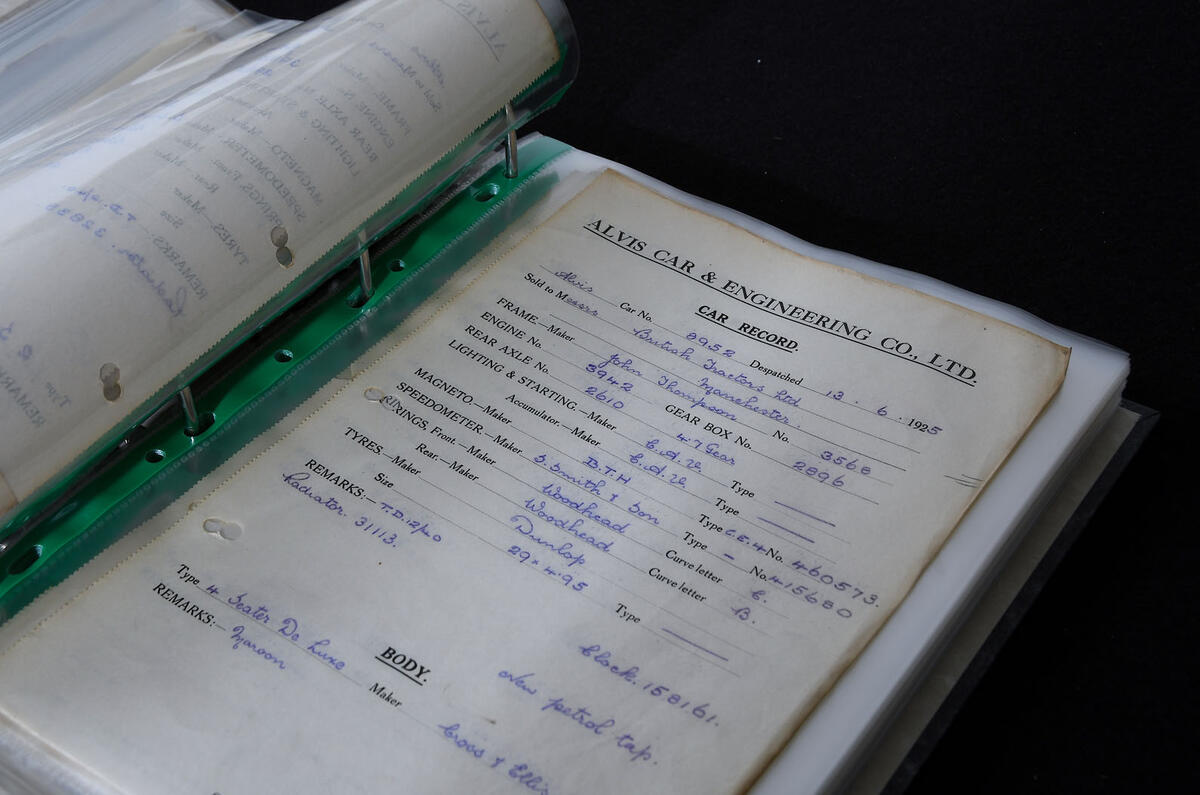 ALVIS CAR & ENGINEERING CO., LTD.
CAR RECORD.
Alvis Car No. 8952 Despatched 13.6.1925
Sold to Messrs British Tractors Ltd
Manchester.
FRAME.—Maker John Thompson No. 3568
ENGINE No. 3942 GEAR BOX No. 2896
REAR AXLE No. 2610 4.7 Gear
LIGHTING & STARTING.—Maker C.A.V. Type
Accumulator.—Maker C.A.V. Type
MAGNETO.—Maker B.T.H Type C.E.4 No. 460573.
SPEEDOMETER.—Maker S. Smith & Son Type – No. 415680
SPRINGS, Front.—Maker Woodhead Curve letter C.
Rear.—Maker Woodhead Curve letter B.
TYRES.—Maker Dunlop Type
Size 29 x 4.95
REMARKS:— T.D. 12/40 Clock. 158161.
Radiator. 31113. New petrol tap.
BODY.
Type 4 Seater De Luxe Maker Cross & Ellis
REMARKS:— Maroon
ALVIS
Sold to Messrs
FRAME
ENGINE No.
REAR AXLE No.
LIGHTING &
MAGNETO
SPEEDOMETER
SPRINGS, Front
Rear.—Maker
TYRES.—Maker
Size
REMARKS:—
Radiator. 32838
Type
REMARKS